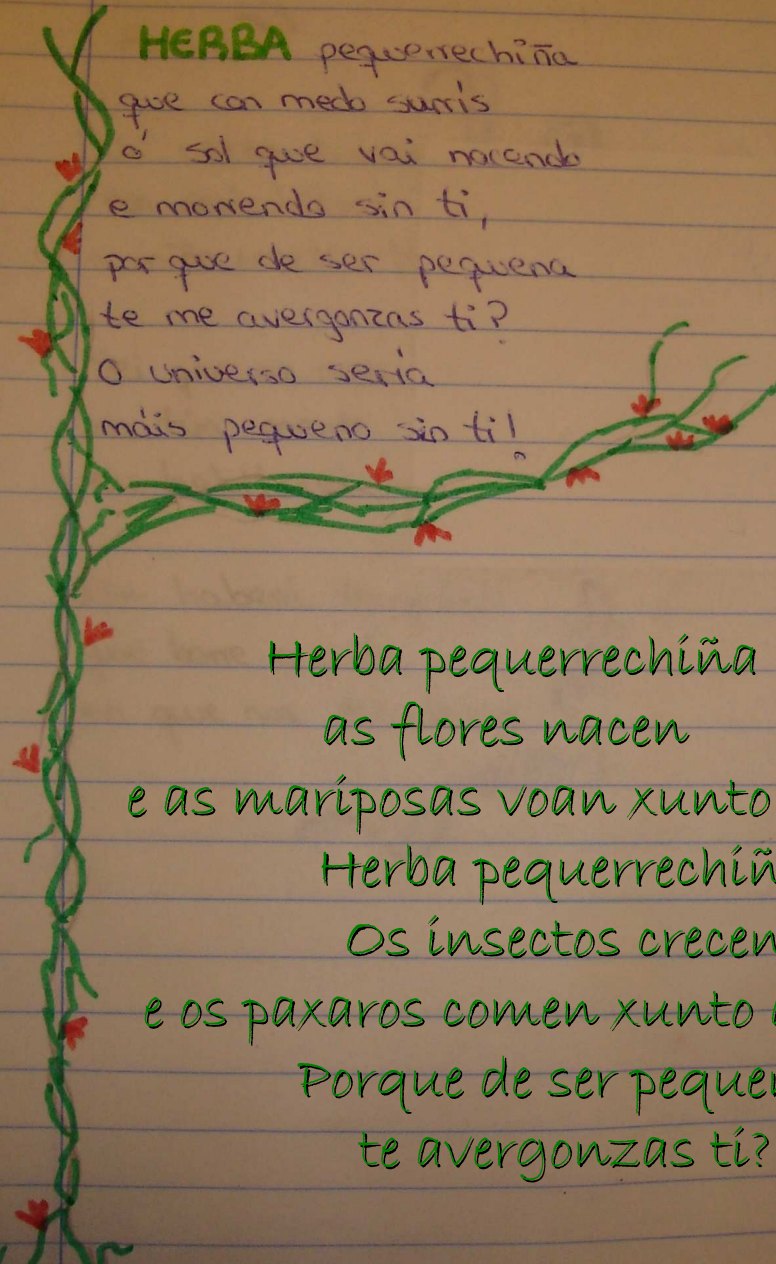 HERBA pequerrechiña
que con medo surrís
ó sol que vai nacendo
e morrendo sin ti,
por que de ser pequena
te me avergonzas ti?
O universo sería
máis pequeno sin ti!
Herba pequerrechiña
as flores nacen
e as mariposas voan xunto
Herba pequerrechiñ
Os insectos crecen
e os paxaros comen xunto
Porque de ser pequen
te avergonzas ti?